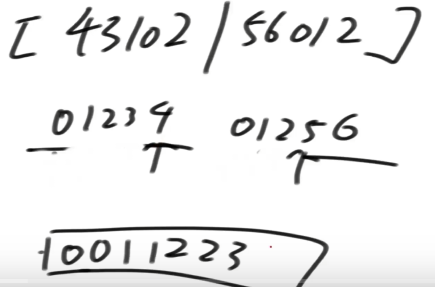 [ 43102 / 56012 ]
01234 01256
10011223